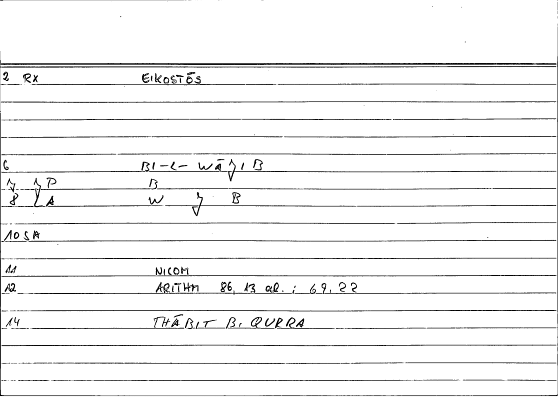 2 RX EIKOSTĒS
6 BI-L- WĀǦIB
7 ǦP B
8 LA W Ǧ B
10 SA
11 NICOM
12 ARITHM 86, 13 al. ; 69, 22
14 THĀBIT B. QURRA